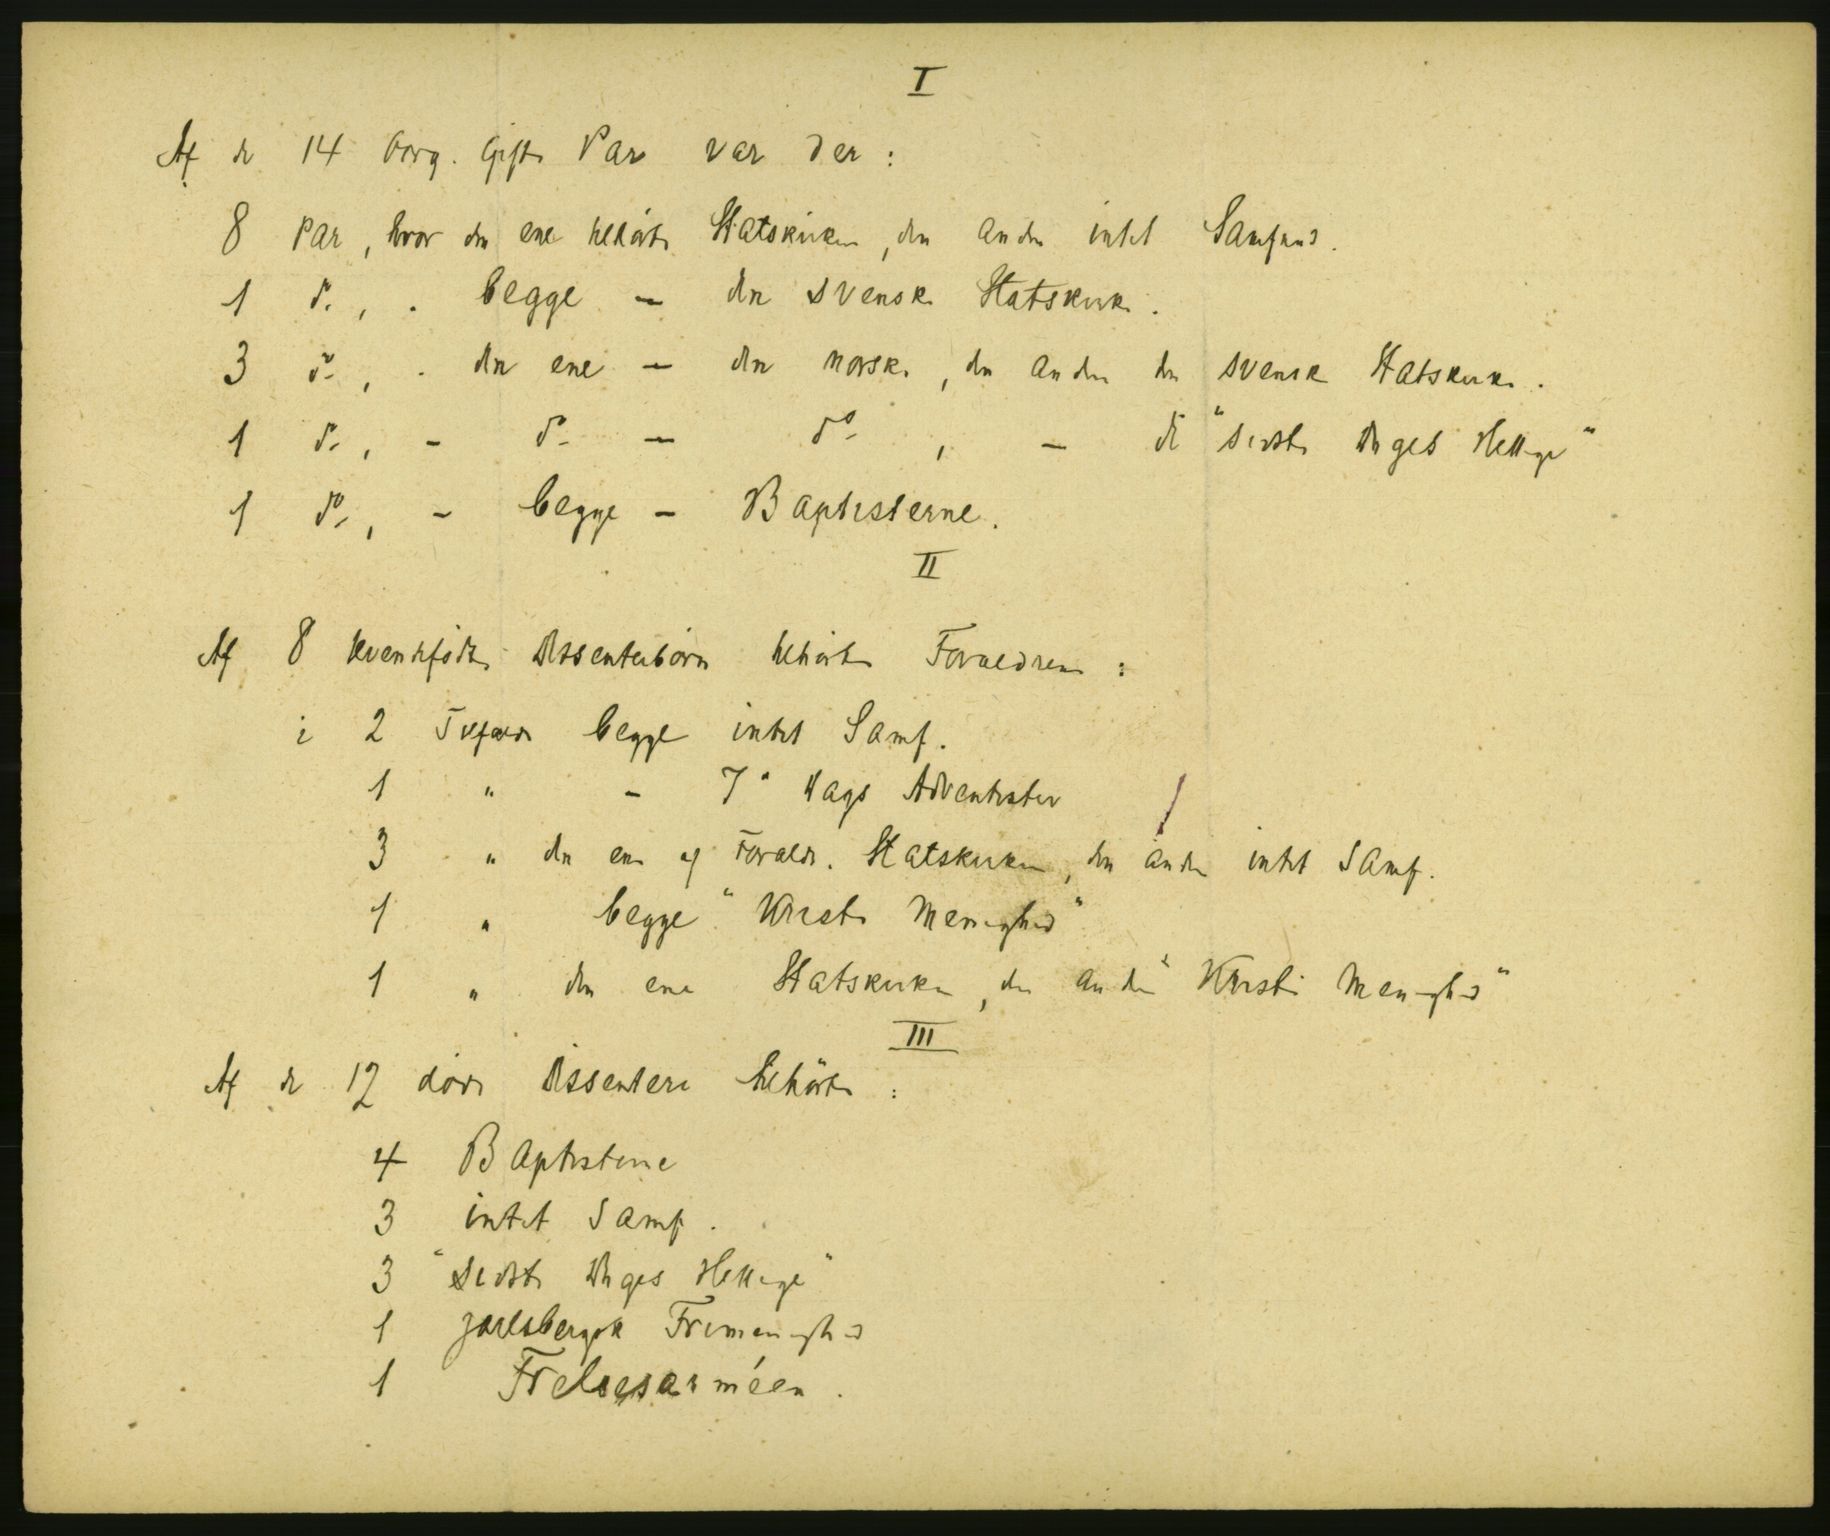 I
Af de 14 borg. gifte Par var der:
8 Par, hvor den ene tilhørte Statskirken, den anden intet Samfund.
1 do, - begge - den svenske Statskirke.
3 do, - den ene - den norske, den anden den svenske Statskirke.
1 do, - do - do, - de "Sidste Dages Hellige"
1 do, - begge - Baptisterne.
II
Af 8 levendefødte Dissenterbørn tilhørte Forældrene:
i 2 Tilfælde begge intet Samf.
1 " - 7de Dags Adventister
3 " den ene af Forældr. Statskirken, den anden intet Samf.
1 " begge "Kristi Menighed"
1 " den ene Statskirken, den anden "Kristi Menighed"
III
Af de 12 døde Dissentere tilhørte:
4 Baptisterne
3 intet Samf.
3 "Sidste Dages Hellige"
1 Jarlsbergske Frimenighed
1 Frelsesarméen.